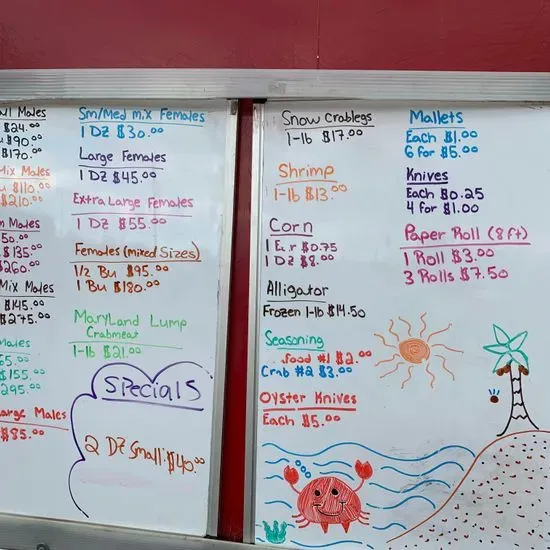 Males
$24.00
$90.00
$170.00
Mix Males
$110.00
$210.00
Males
50.00
$135.00
$260.00
Mix Males
$145.00
$275.00
Males
65.00
$155.00
295.00
Large Males
$85.00
Sm/Med mix Females
1 DZ $30.00
Large Females
1 DZ $45.00
Extra Large Females
1 DZ $55.00
Females (mixed Sizes)
1/2 Bu $95.00
1 Bu $180.00
Maryland Lump
Crabmeat
1-lb $21.00
Specials
2 DZ Small $40.00
Snow Crablegs
1-lb $17.00
Shrimp
1-lb $13.00
Corn
1 Ear $0.75
1 DZ $8.00
Alligator
Frozen 1-lb $14.50
Seasoning
food #1 $2.00
Crab #2 $3.00
Oyster Knives
Each $5.00
Mallets
Each $1.00
6 for $5.00
Knives
Each $0.25
4 for $1.00
Paper Roll (8ft)
1 Roll $3.00
3 Rolls $7.50